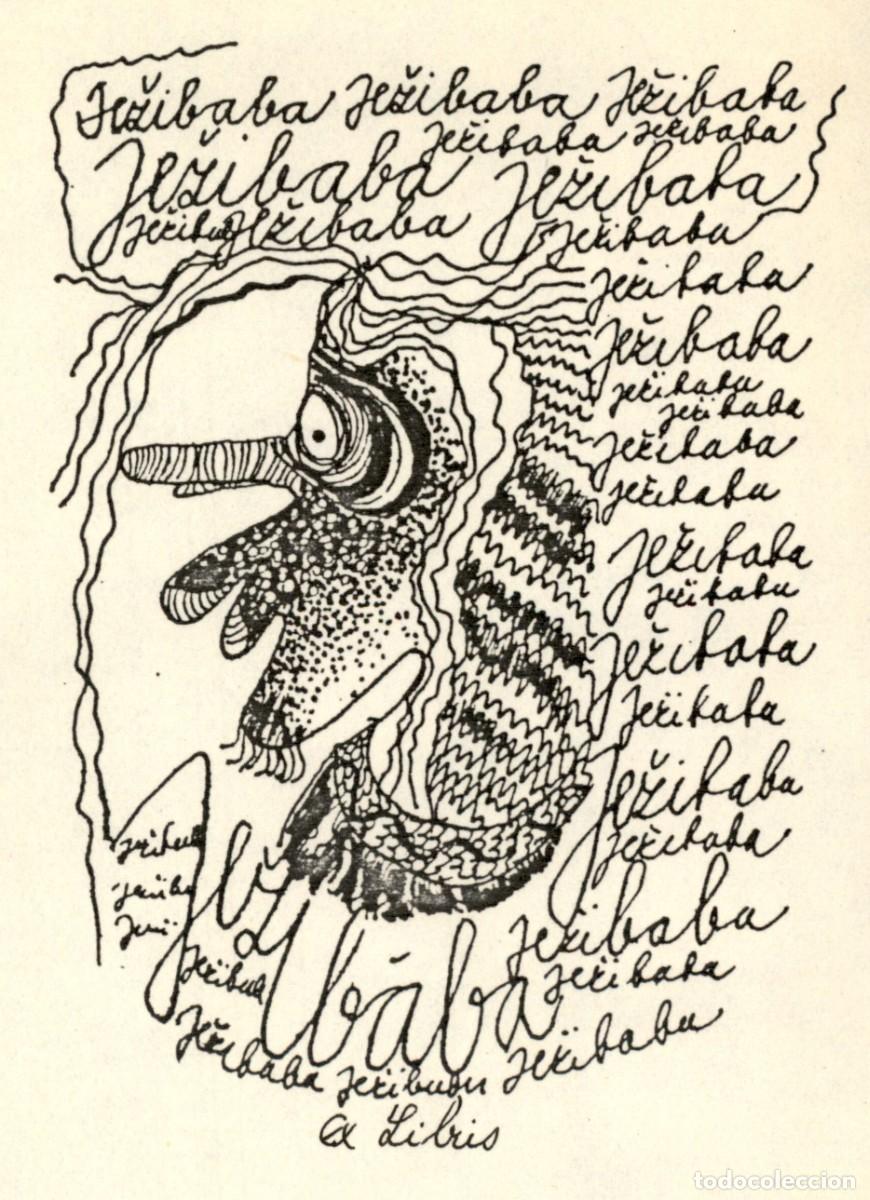 Ježibaba Ježibaba Ježibaba
Ježibaba Ježibaba
Ježibaba Ježibaba
Ježibaba Ježibaba
Ježibaba
Ježibaba
Ježibaba
Ježibaba
Ježibaba
Ježibaba
Ježibaba
Ježibaba
Ježibaba
Ježibaba
Ježibaba
Ježibaba
Ježibaba
Ježi Bába
Ježibaba
Ježibaba
Ježibaba Ježibaba Ježibaba
Ex Libris
todocoleccion